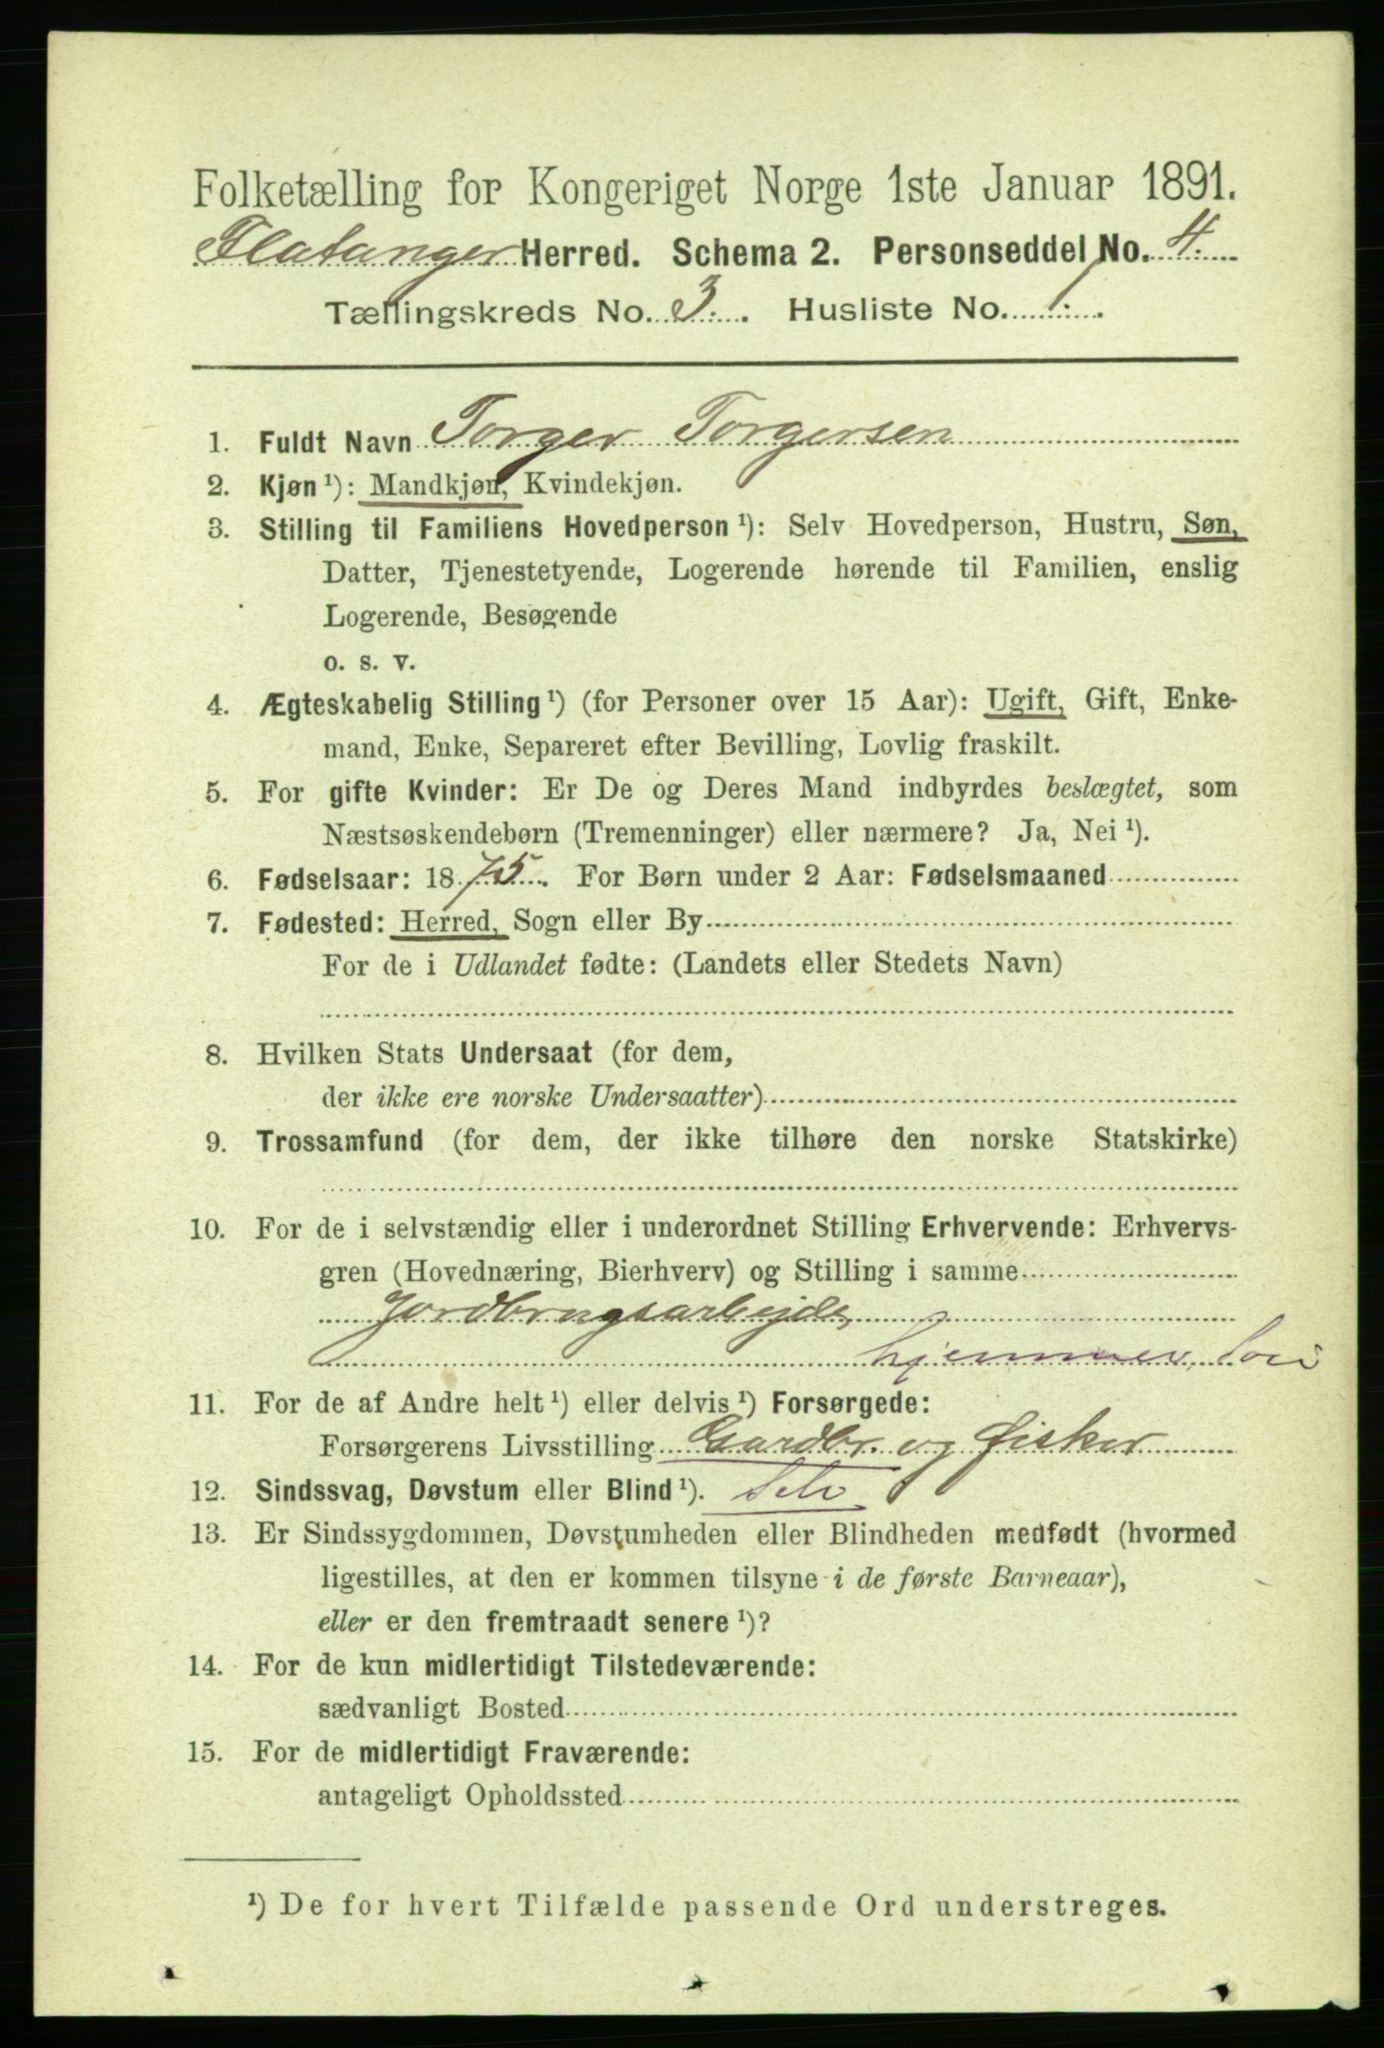 Folketælling for Kongeriget Norge 1ste Januar 1891.
Flatanger Herred. Schema 2. Personseddel No. 4.
Tællingskreds No. 3. Husliste No. 1.
1. Fuldt Navn Torger Torgersen
2. Kjøn ¹): Mandkjøn, Kvindekjøn.
3. Stilling til Familiens Hovedperson ¹): Selv Hovedperson, Hustru, Søn,
Datter, Tjenestetyende, Logerende hørende til Familien, enslig
Logerende, Besøgende
o. s. v.
4. Ægteskabelig Stilling ¹) (for Personer over 15 Aar): Ugift, Gift, Enke-
mand, Enke, Separeret efter Bevilling, Lovlig fraskilt.
5. For gifte Kvinder: Er De og Deres Mand indbyrdes beslægtet, som
Næstsøskendebørn (Tremenninger) eller nærmere? Ja, Nei ¹).
6. Fødselsaar: 1875. For Børn under 2 Aar: Fødselsmaaned
7. Fødested: Herred, Sogn eller By
For de i Udlandet fødte: (Landets eller Stedets Navn)
8. Hvilken Stats Undersaat (for dem,
der ikke ere norske Undersaatter)
9. Trossamfund (for dem, der ikke tilhøre den norske Statskirke)
10. For de i selvstændig eller i underordnet Stilling Erhvervende: Erhvervs-
gren (Hovednæring, Bierhverv) og Stilling i samme
Jordbrugsarbejde,
hjemmev.
11. For de af Andre helt ¹) eller delvis ¹) Forsørgede:
Forsørgerens Livsstilling Gardbr. og Fisker
12. Sindssvag, Døvstum eller Blind ¹). Selv
13. Er Sindssygdommen, Døvstumheden eller Blindheden medfødt (hvormed
ligestilles, at den er kommen tilsyne i de første Barneaar),
eller er den fremtraadt senere ¹)?
14. For de kun midlertidigt Tilstedeværende:
sædvanligt Bosted
15. For de midlertidigt Fraværende:
antageligt Opholdssted
¹) De for hvert Tilfælde passende Ord understreges.